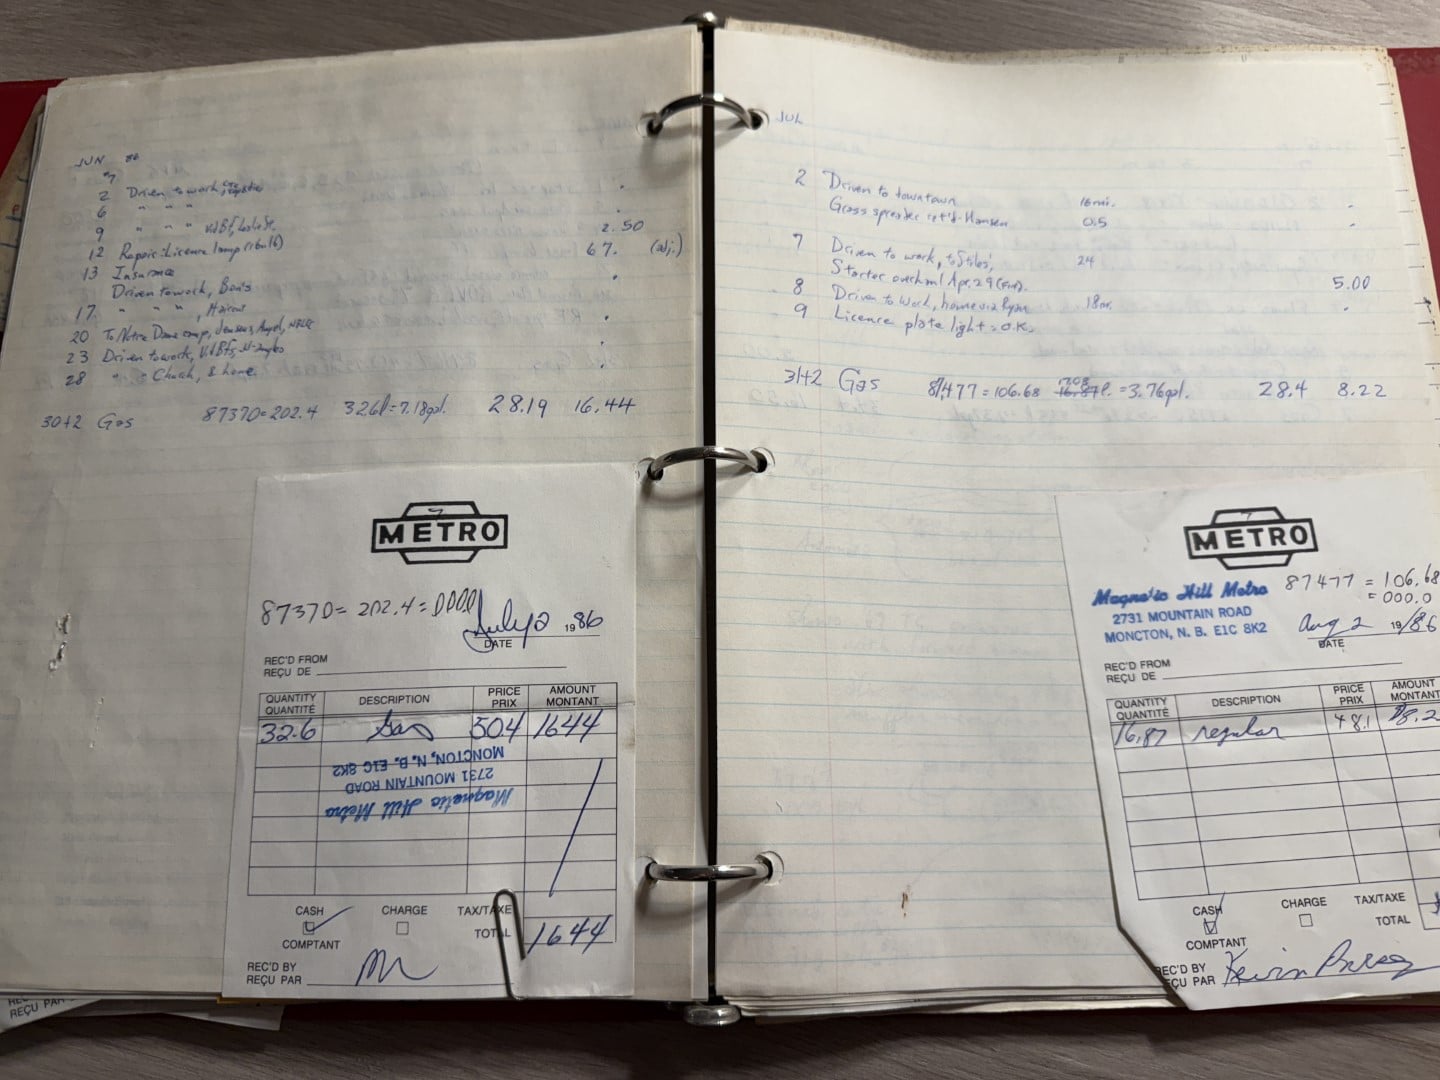 JUN 86
2 Driven to work,
6 " " "
9 " " " V.d.B.f,
12 Repair: Licence lamp (1bulb) 2.50
13 Insurance 67. (adj.)
Driven to work, Ben's
17. " " " , Haircut
20 To Notre Dame
23 Driven to work,
28 " " Church, & home
30+2 Gas 87370=202.4 326l=7.18gal. 28.19 16.44
METRO
87370= 202.4=0000
July 2 1986
DATE
REC'D FROM
REÇU DE
QUANTITY QUANTITÉ DESCRIPTION PRICE PRIX AMOUNT MONTANT
32.6 Gas 504 1644
Magnetic Hill Metro
2731 MOUNTAIN ROAD
MONCTON, N. B. E1C 8K2
CASH COMPTANT CHARGE TAX/TAXE
TOTAL 1644
REC'D BY
REÇU PAR
JUL
2 Driven to downtown 16mi.
Grass spreader ret'd-Hansen 0.5
7 Driven to work, to Stiles', 24
Starter overhaul Apr. 29 5.00
8 Driven to work, home via Ryan 18m.
9 Licence plate light = O.K.
31+2 Gas 87477=106.68 16.87l. =3.76gal. 28.4 8.22
METRO
Magnetic Hill Metro
2731 MOUNTAIN ROAD
MONCTON, N. B. E1C 8K2
87477 = 106.68
= 000.0
Aug 2 19/86
DATE
REC'D FROM
REÇU DE
QUANTITY QUANTITÉ DESCRIPTION PRICE PRIX AMOUNT MONTANT
16.87 regular 48.1 8.2
CASH COMPTANT CHARGE TAX/TAXE
TOTAL
REC'D BY
EÇU PAR Kevin